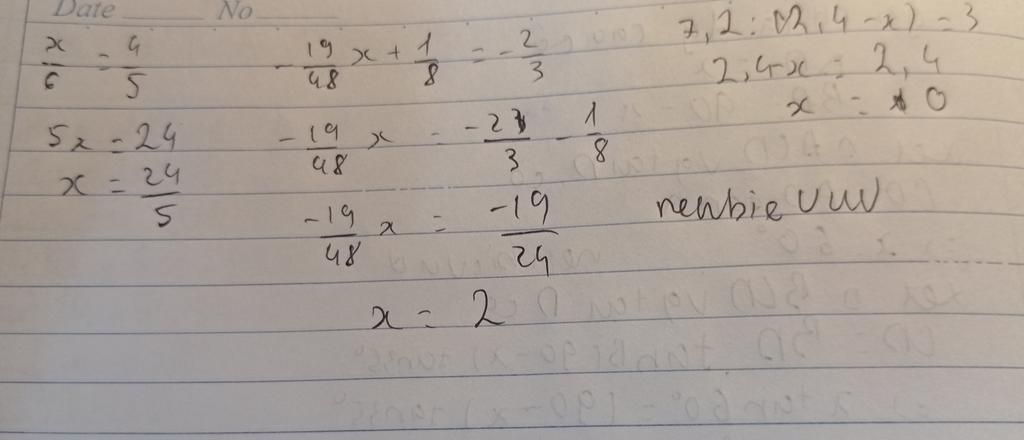 Date No
x/6 = 4/5
5x = 24
x = 24/5
-19/48 x + 1/8 = -2/3
-19/48 x = -2/3 - 1/8
-19/48 x = -19/24
x = 2
7,2 : (2,4-x) = 3
2,4-x = 2,4
x = 0
newbie UwU